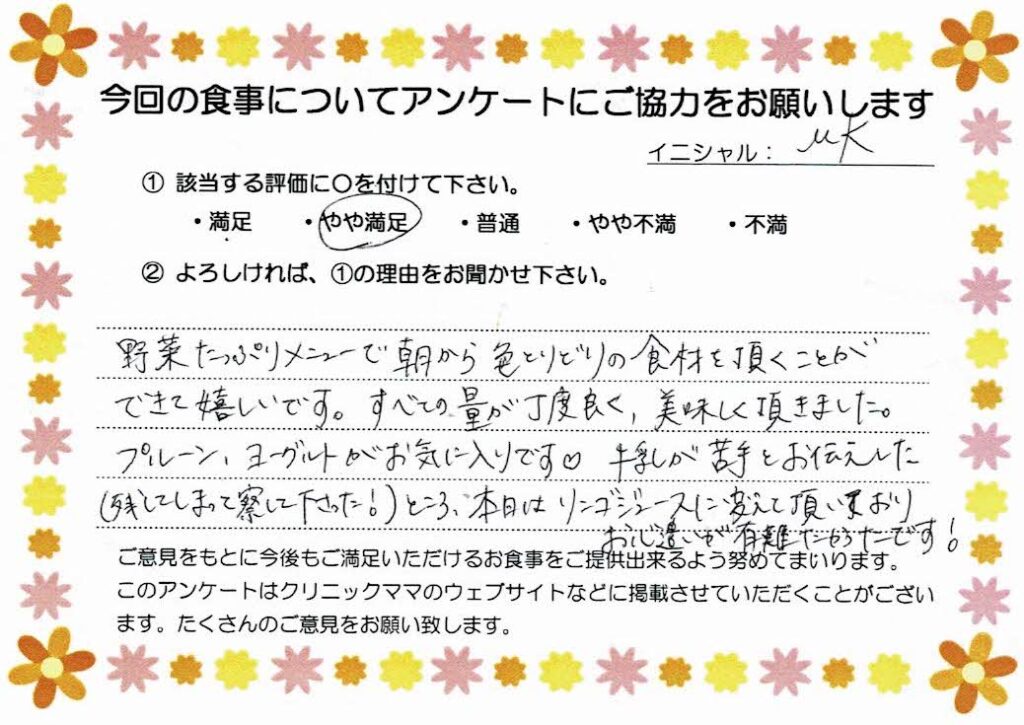 今回の食事についてアンケートにご協力をお願いします
イニシャル： MK
① 該当する評価に〇を付けて下さい。
・満足 ・やや満足 ・普通 ・やや不満 ・不満
② よろしければ、①の理由をお聞かせ下さい。
野菜たっぷりメニューで朝から色とりどりの食材を頂くことが
できて嬉しいです。すべての量が丁度良く、美味しく頂きました。
プルーン、ヨーグルトがお気に入りです♡ 牛乳が苦手とお伝えした
(残してしまって察して下さった!)ところ、本日はリンゴジュースに変えて頂いており
お心遣いが有難たかったです!
ご意見をもとに今後もご満足いただけるお食事をご提供出来るよう努めてまいります。
このアンケートはクリニックママのウェブサイトなどに掲載させていただくことがござい
ます。たくさんのご意見をお願い致します。